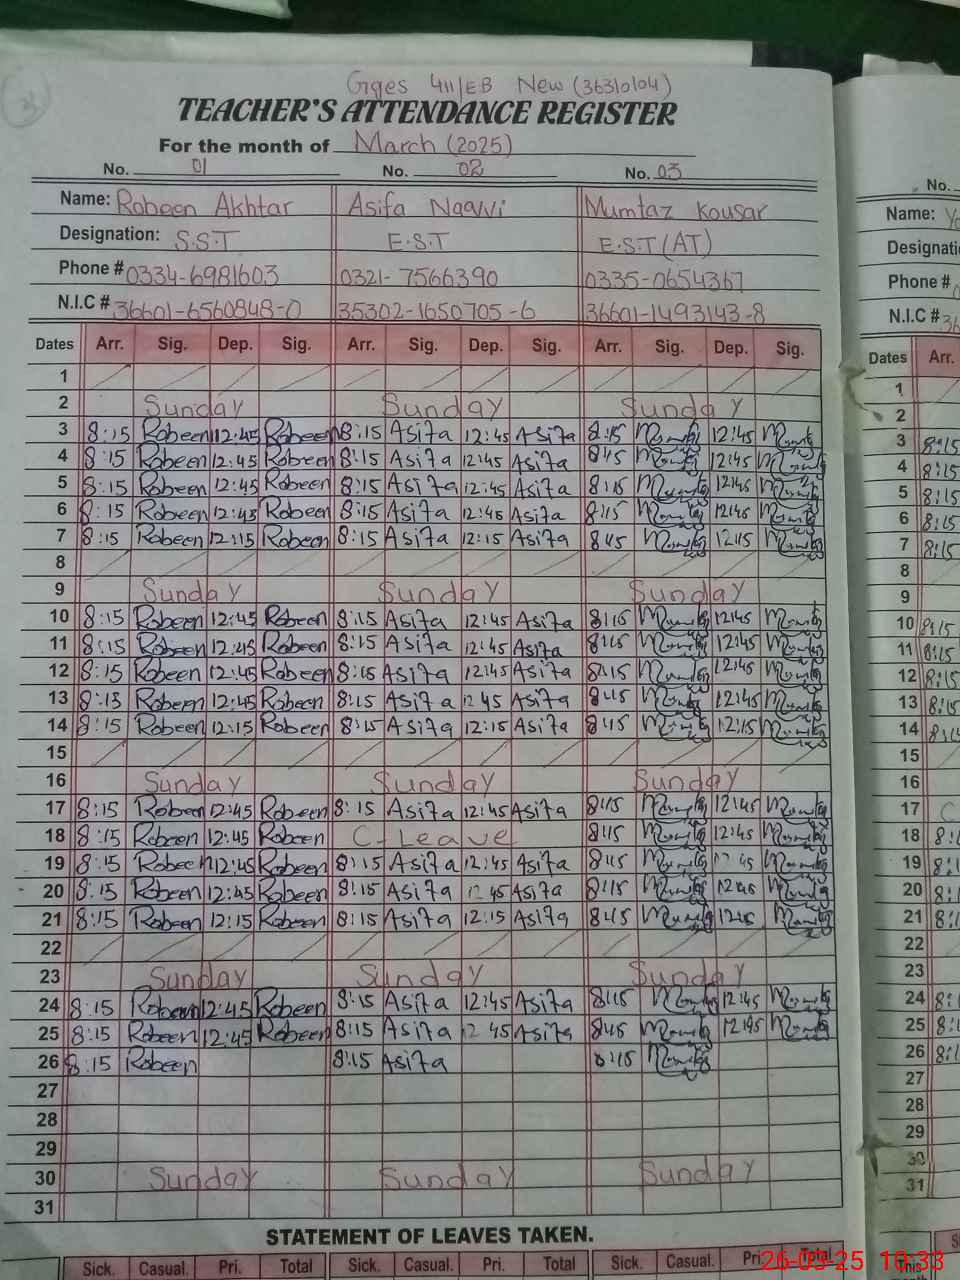 Gges 411/EB New (36310104)
TEACHER'S ATTENDANCE REGISTER
For the month of March (2025)
No. 01 No. 02 No. 03
Name: Robeen Akhtar Asifa Naqvi Mumtaz Kousar
Designation: S.S.T E.S.T E.S.T (AT)
Phone # 0334-6981603 0321-7566390 0335-0654367
N.I.C # 36601-6560848-0 35302-1650705-6 36601-1493143-8
Dates Arr. Sig. Dep. Sig. Arr. Sig. Dep. Sig. Arr. Sig. Dep. Sig.
1
2 Sunday Sunday Sunday
3 8:15 Robeen 12:45 Robeen 8:15 Asifa 12:45 Asifa 8:15 12:45
4 8:15 Robeen 12:45 Robeen 8:15 Asifa 12:45 Asifa 8:15 12:45
5 8:15 Robeen 12:45 Robeen 8:15 Asifa 12:45 Asifa 8:15 12:45
6 8:15 Robeen 12:45 Robeen 8:15 Asifa 12:45 Asifa 8:15 12:45
7 8:15 Robeen 12:15 Robeen 8:15 Asifa 12:15 Asifa 8:15 12:15
8
9 Sunday Sunday Sunday
10 8:15 Robeen 12:45 Robeen 8:15 Asifa 12:45 Asifa 8:15 12:45
11 8:15 Robeen 12:45 Robeen 8:15 Asifa 12:45 Asifa 8:15 12:45
12 8:15 Robeen 12:45 Robeen 8:15 Asifa 12:45 Asifa 8:15 12:45
13 8:15 Robeen 12:45 Robeen 8:15 Asifa 12 45 Asifa 8:15 12:45
14 8:15 Robeen 12:15 Robeen 8:15 Asifa 12:15 Asifa 8:15 12:15
15
16 Sunday Sunday Sunday
17 8:15 Robeen 12:45 Robeen 8:15 Asifa 12:45 Asifa 8:15 12:45
18 8:15 Robeen 12:45 Robeen C. Leave 8:15 12:45
19 8:15 Robeen 12:45 Robeen 8:15 Asifa 12:45 Asifa 8:15 12 45
20 8:15 Robeen 12:45 Robeen 8:15 Asifa 12 45 Asifa 8:15 12:45
21 8:15 Robeen 12:15 Robeen 8:15 Asifa 12:15 Asifa 8:15 12:15
22
23 Sunday Sunday Sunday
24 8:15 Robeen 12:45 Robeen 8:15 Asifa 12:45 Asifa 8:15 12:45
25 8:15 Robeen 12:45 Robeen 8:15 Asifa 12 45 Asifa 8:15 12:45
26 8:15 Robeen 8:15 Asifa 8:15
27
28
29
30 Sunday Sunday Sunday
31
STATEMENT OF LEAVES TAKEN.
Sick. Casual. Pri. Total Sick. Casual. Pri. Total Sick. Casual. Pri. Total
No.
Name:
Designati
Phone #
N.I.C # 36
Dates Arr.
1
2
3 8:15
4 8:15
5 8:15
6 8:15
7 8:15
8
9
10 8:15
11 8:15
12 8:15
13 8:15
14 8:15
15
16
17 C
18 8:
19 8:
20 8:
21 8:
22
23
24 8:
25 8:
26 8:
27
28
29
30
31
26-03-25 10:33